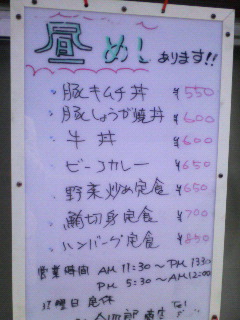 昼めしあります!!
・豚キムチ丼 ¥550
・豚しょうが焼丼 ¥600
・牛丼 ¥600
・ビーフカレー ¥650
・野菜炒め定食 ¥650
・鮪切身定食 ¥700
・ハンバーグ定食 ¥850
営業時間 AM 11:30〜PM 1330
PM 5:30〜AM 12:00
日曜日定休
Tel